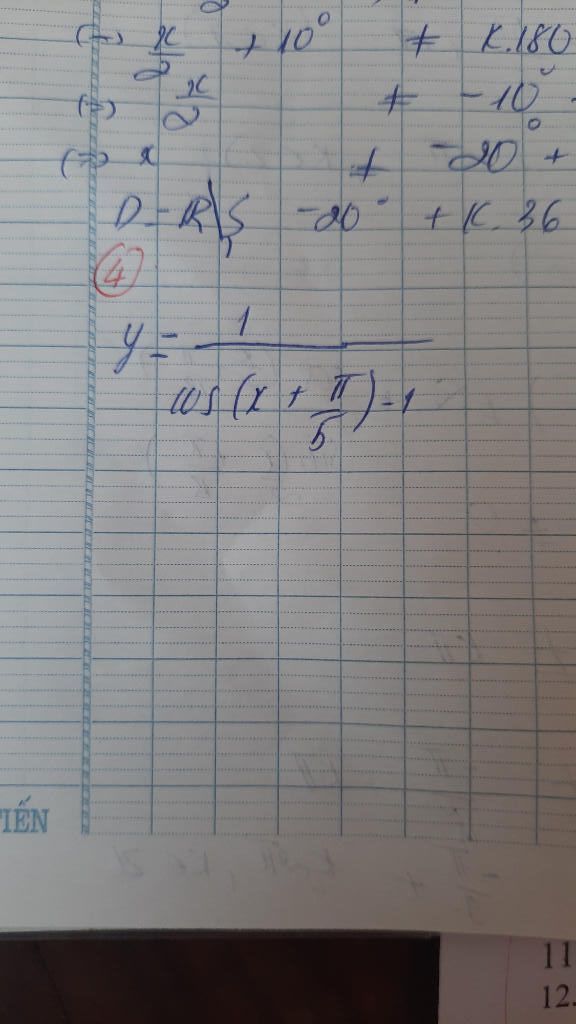 (=) x/2 + 10° ≠ K.180
(=) x/2 ≠ -10°
(=) x ≠ -20° +
D = R\{ -20° + K.36
4
y = 1/(cos(x + π/5) - 1)
TIẾN
11
12.